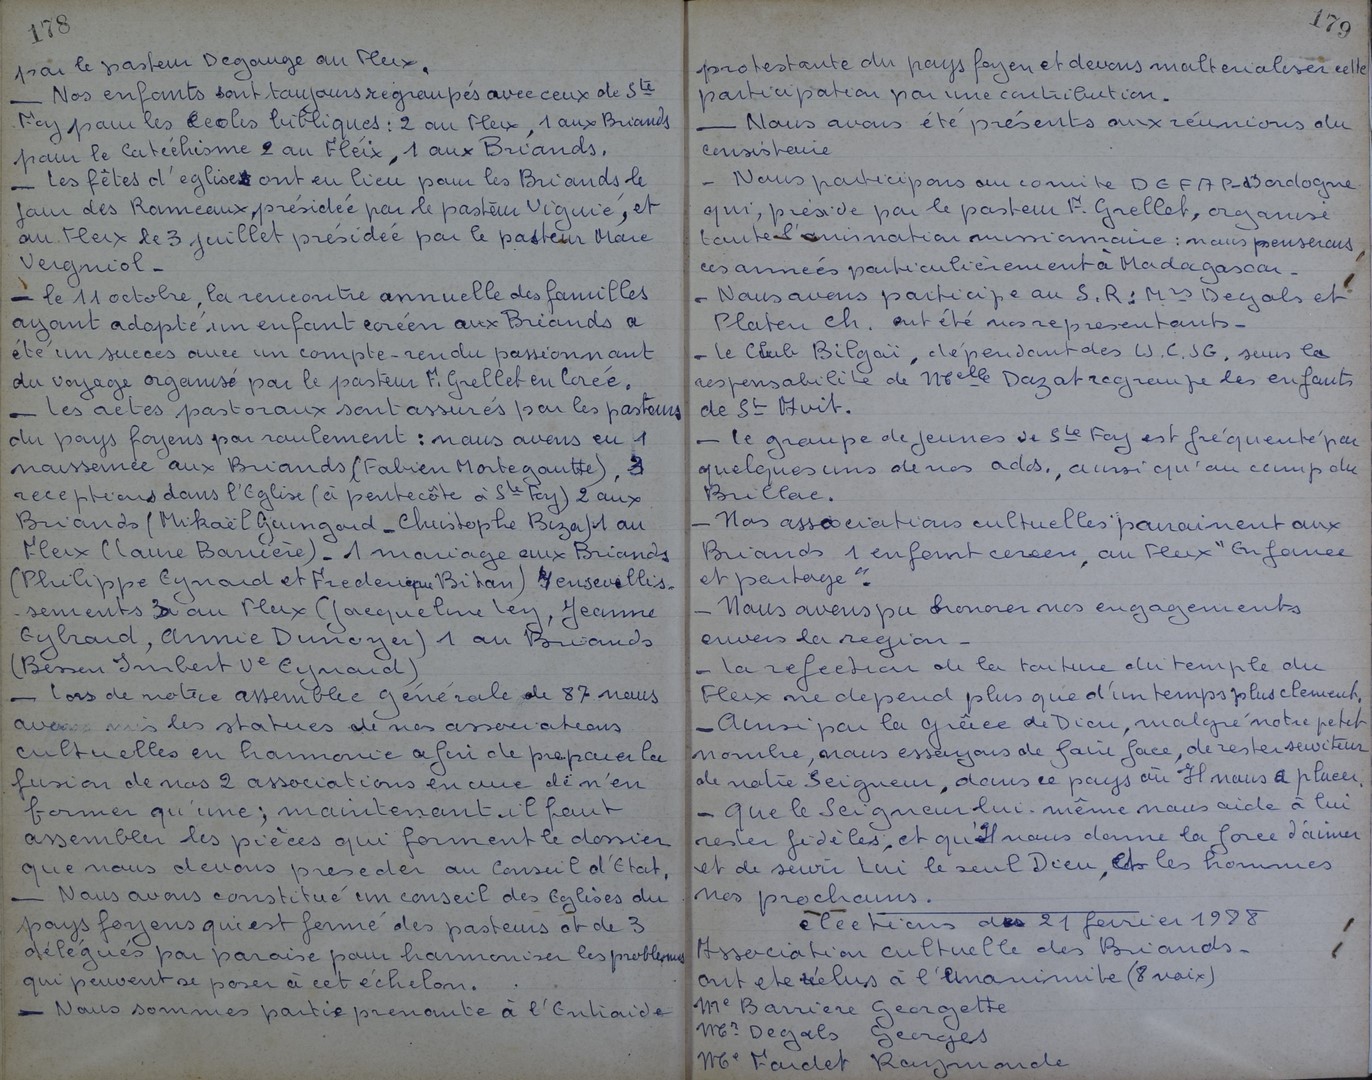 178
par le pasteur Degauge au Fleix.
— Nos enfants sont toujours regroupés avec ceux de Ste
Foy pour les Ecoles bibliques : 2 au Fleix, 1 aux Briands
pour le Catéchisme 2 au Fleix, 1 aux Briands.
— Les fêtes d'eglise ont eu lieu pour les Briands le
jour des Rameaux, présidée par le pasteur Viguié, et
au Fleix le 3 juillet présidée par le pasteur Marc
Vergniol -
- le 11 octobre, la rencontre annuelle des familles
ayant adopté un enfant coréen aux Briands a
été un succes avec un compte-rendu passionnant
du voyage organisé par le pasteur F. Grellet en Corée.
— Les actes pastoraux sont assurés par les pasteurs
du pays foyens par roulement : nous avons eu 1
naissance aux Briands (Fabien Mortegoutte), 3
receptions dans l'Eglise (à pentecôte à Ste Foy) 2 aux
Briands (Mikaël Guingand - Christophe Biza) 1 au
Fleix (Laure Barrière) - 1 mariage aux Briands
(Philippe Eynard et Frederique Bitan) 4 ensevellis-
-sements 3 au Fleix (Jacqueline Ley, Jeanne
Eybrard, Annie Dunoyer) 1 au Briands
(Besson Imbert Ve Eynard)
— Lors de notre assemblée générale de 87 nous
avons mis les statues de nos associations
cultuelles en harmonie afin de preparer la
fusion de nos 2 associations en une de n'en
former qu'une ; maintenant il faut
assembler les pièces qui forment le dossier
que nous devons preseder au Conseil d'Etat.
— Nous avons constitué un conseil des Eglises du
pays foyens qui est formé des pasteurs et de 3
délégués par paroise pour harmoniser les problemes
qui peuvent se poser à cet échelon.
— Nous sommes partie prenante à l'Entraide
179
protestante du pays foyen et devons materialiser cette
participation par une contribution.
— Nous avons été présents aux réunions du
consistoire
- Nous participons au comite DEFAP-Dordogne
qui, préside par le pasteur F. Grellet, organise
toute l'animation missionnaire : nous penserons
ces années particulièrement à Madagascar -
- Nous avons participe au S.R : Mrs Degals et
Platen Ch. ont été nos representants -
- le Club Bilgaï, dépendant des U.C.JG. sous la
responsabilité de Melle Dazat regroupe les enfants
de St Avit.
- le groupe de jeunes de Ste Foy est fréquenté par
quelques uns de nos ados., ainsi qu'au camp du
Brillac.
- Nos associations cultuelles parainent aux
Briands 1 enfant coreen, au Fleix "Enfance
et partage".
- Nous avons pu honorer nos engagements
envers la region -
- la refection de la toiture du temple du
Fleix ne depend plus que d'un temps plus clement,
- Ainsi par la Grâce de Dieu, malgré notre petit
nombre, nous essayons de faire face, de rester serviteur
de notre Seigneur, dans ce pays où Il nous a placer.
- Que le Seigneur lui-même nous aide à lui
rester fidèles, et qu'Il nous donne la force d'aimer
et de servir Lui le seul Dieu, et les hommes
nos prochains.
élections du 21 fevrier 1988
Association cultuelle des Briands -
ont ete réélus à l'Unanimite (8 voix)
Me Barriere Georgette
Mr Degals Georges
Me Faudet Raymonde